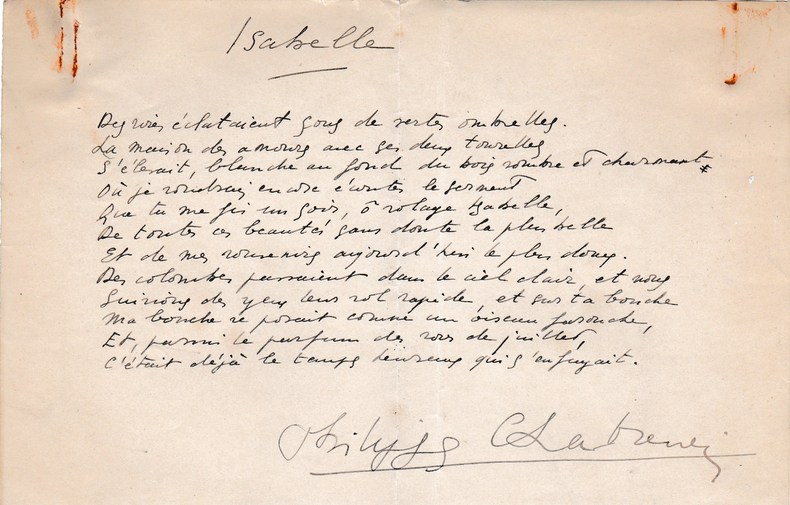 Isabelle
Des rires éclataient sous de vertes ombrelles.
La maison des amours avec ses deux tourelles
S'élevait, blanche au fond du bois sombre et charmant *
Où je voudrais encore écouter le serment
Que tu me fis un soir, ô volage Isabelle,
De toutes ces beautés sans doute la plus belle
Et de mes souvenirs aujourd'hui le plus doux.
Des colombes passaient dans le ciel clair, et nous
Suivions des yeux leur vol rapide, et sur ta bouche
Ma bouche se posait comme un oiseau farouche,
Et, parmi le parfum des roses de juillet,
C'était déjà le temps heureux qui s'enfuyait.
Philippe Chabaneix